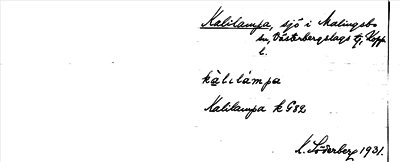 Kalilampa, sjö i Malingsbo
sn, Västerbergslags tg, Kopp.
l.
kàlilámpa
Kalilampa k G82
K. Söderberg 1931.